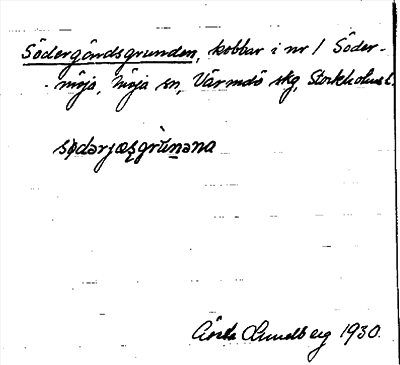 Södergöndsgrunden, kobbar i nr 1 Söder-
möja, Möja sn, Värmdö skg, Stockholms l.
södərjæʂgrùnəna
Gösta Lundberg 1930.